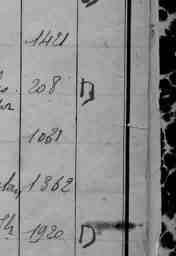 1421
208 D
1061
1862
1920 D